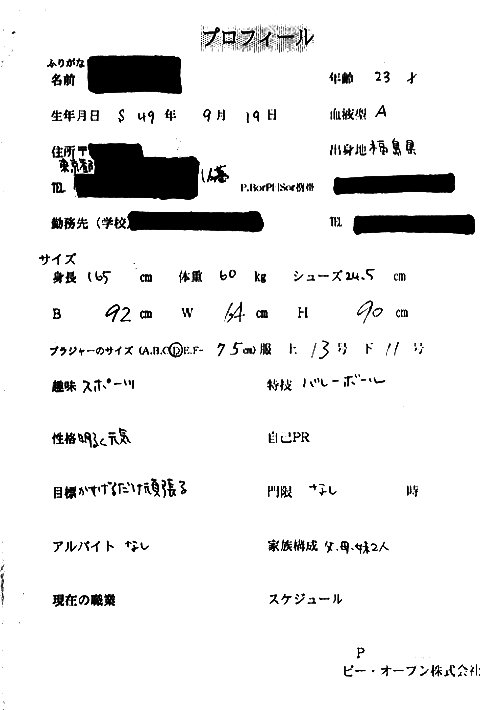 プロフィール
ふりがな
名前 年齢 23 才
生年月日 S 49 年 9月 19日 血液型 A
住所 〒 出身地 福島県
東京都
TEL P.BorPHSor携帯
勤務先（学校） TEL
サイズ
身長 165 cm 体重 60 kg シューズ 24.5 cm
B 92 cm W 64 cm H 90 cm
ブラジャーのサイズ（A.B.C.D.E.F- 75 cm）服 上 13 号 下 11 号
趣味 スポーツ 特技 バレーボール
性格 明るく元気 自己PR
目標 かせげるだけ頑張る 門限 なし 時
アルバイト なし 家族構成 父、母、妹2人
現在の職業 スケジュール
P
ピー・オープン株式会社